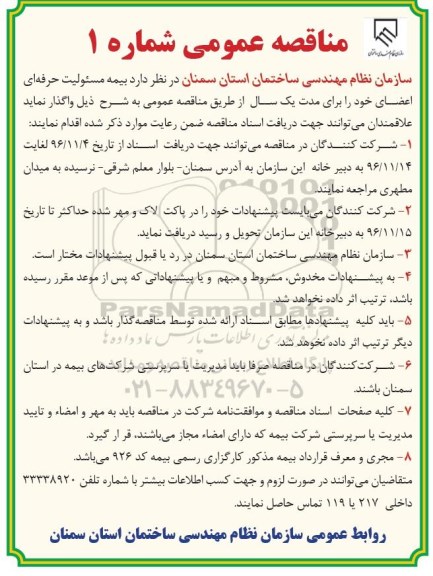 مناقصه عمومی شماره ۱
سازمان نظام مهندسی ساختمان استان سمنان در نظر دارد بیمه مسئولیت حرفه‌ای
اعضای خود را برای مدت یک سال از طریق مناقصه عمومی به شرح ذیل واگذار نماید
علاقمندان می‌توانند جهت دریافت اسناد مناقصه ضمن رعایت موارد ذکر شده اقدام نمایند:
۱- شرکت کنندگان در مناقصه می‌توانند جهت دریافت اسناد از تاریخ ۹۶/۱۱/۴ لغایت
۹۶/۱۱/۱۴ به دبیر خانه این سازمان به آدرس سمنان- بلوار معلم شرقی- نرسیده به میدان
مطهری مراجعه نمایند.
۲- شرکت کنندگان می‌بایست پیشنهادات خود را در پاکت لاک و مهر شده حداکثر تا تاریخ
۹۶/۱۱/۱۵ به دبیرخانه این سازمان تحویل و رسید دریافت نماید.
۳- سازمان نظام مهندسی ساختمان استان سمنان در رد یا قبول پیشنهادات مختار است.
۴- به پیشنهادات مخدوش، مشروط و مبهم و یا پیشنهاداتی که پس از موعد مقرر رسیده
باشد، ترتیب اثر داده نخواهد شد.
۵- باید کلیه پیشنهادها مطابق اسناد ارائه شده توسط مناقصه‌گذار باشد و به پیشنهادات
دیگر ترتیب اثر داده نخواهد شد.
۶- شرکت‌کنندگان در مناقصه صرفا باید مدیریت یا سرپرستی شرکت‌های بیمه در استان
سمنان باشند.
۷- کلیه صفحات اسناد مناقصه و موافقت‌نامه شرکت در مناقصه باید به مهر و امضاء و تایید
مدیریت یا سرپرستی شرکت بیمه که دارای امضاء مجاز می‌باشند، قر ار گیرد.
۸- مجری و معرف قرارداد بیمه مذکور کارگزاری رسمی بیمه کد ۹۲۶ می‌باشد.
متقاضیان می‌توانند در صورت لزوم و جهت کسب اطلاعات بیشتر با شماره تلفن ۳۳۳۳۸۹۲۰
داخلی ۲۱۷ یا ۱۱۹ تماس حاصل نمایند.
روابط عمومی سازمان نظام مهندسی ساختمان استان سمنان
ParsNamadData
۰۲۱-۸۸۳۴۹۶۷۰-۵